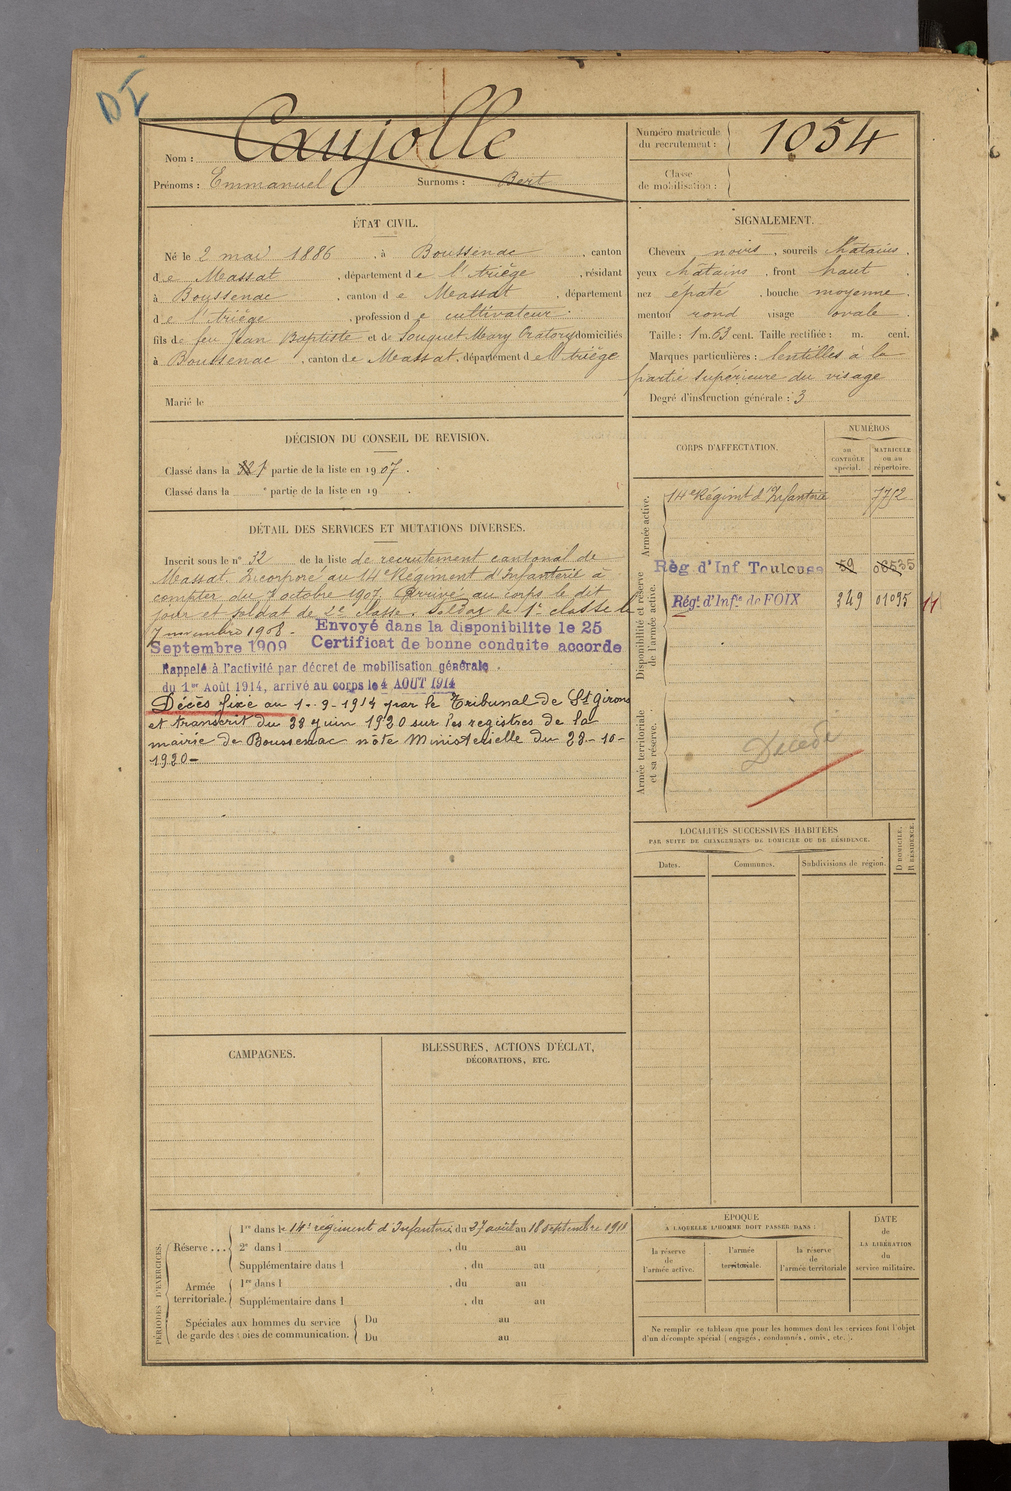 DI
Nom : Caujolle
Prénoms : Emmanuel Surnoms : Bert
Numéro matricule du recrutement : 1054
Classe de mobilisation :
ÉTAT CIVIL.
Né le 2 mai 1886, à Boussenac, canton
de Massat, département de l'Ariège, résidant
à Boussenac, canton de Massat, département
de l'Ariège, profession de cultivateur.
fils de feu Jean Baptiste et de Souquet Mary Oratory domiciliés
à Boussenac, canton de Massat, département de l'Ariège
Marié le
SIGNALEMENT.
Cheveux noirs, sourcils châtains,
yeux châtains, front haut,
nez épaté, bouche moyenne,
menton rond visage ovale.
Taille : 1 m. 63 cent. Taille rectifiée : m. cent.
Marques particulières : lentilles à la
partie supérieure du visage
Degré d'instruction générale : 3
DÉCISION DU CONSEIL DE REVISION.
Classé dans la partie de la liste en 1907.
Classé dans la e partie de la liste en 19 .
DÉTAIL DES SERVICES ET MUTATIONS DIVERSES.
Inscrit sous le n° 32 de la liste de recrutement cantonal de
Massat. Incorporé au 14e Régiment d'Infanterie à
compter du 7 octobre 1907, Arrivé au corps le dit
jour et soldat de 2e classe. Soldat de 1e classe le
7 novembre 1908. Envoyé dans la disponibilite le 25
Septembre 1909 Certificat de bonne conduite accorde
Rappelé à l'activité par décret de mobilisation générale
du 1er Août 1914, arrivé au corps le 4 AOUT 1914
Décès fixé au 1-9-1914 par le Tribunal de St Girons
et transcrit du 28 juin 1920 sur les registres de la
mairie de Boussenac note Ministerielle du 23-10-
1920-
CORPS D'AFFECTATION.
NUMÉROS
au CONTRÔLE spécial.
MATRICULE ou au répertoire.
Armée active.
14e Régimt d'Infanterie 7752
Disponibilité et réserve de l'armée active.
Règ d'Inf Toulouse 59 08535
Régt. d'Infie de FOIX 349 01095 11
Armée territoriale et sa réserve.
Décédé
LOCALITÉS SUCCESSIVES HABITÉES
PAR SUITE DE CHANGEMENTS DE DOMICILE OU DE RÉSIDENCE.
Dates. Communes. Subdivisions de région. D DOMICILE. R RÉSIDENCE.
CAMPAGNES.
BLESSURES, ACTIONS D'ÉCLAT,
DÉCORATIONS, ETC.
PÉRIODES D'EXERCICES.
Réserve ... 1re dans le 14e régiment d'Infanterie du 27 août au 18 septembre 1911
2e dans l , du au
Supplémentaire dans l , du au
Armée territoriale. 1re dans l , du au
Supplémentaire dans l , du au
Spéciales aux hommes du service Du au
de garde des voies de communication. Du au
ÉPOQUE
À LAQUELLE L'HOMME DOIT PASSER DANS :
la réserve de l'armée active.
l'armée territoriale.
la réserve de l'armée territoriale
DATE de LA LIBÉRATION du service militaire.
Ne remplir ce tableau que pour les hommes dont les services font l'objet
d'un décompte spécial (engagés, condamnés, omis, etc.).